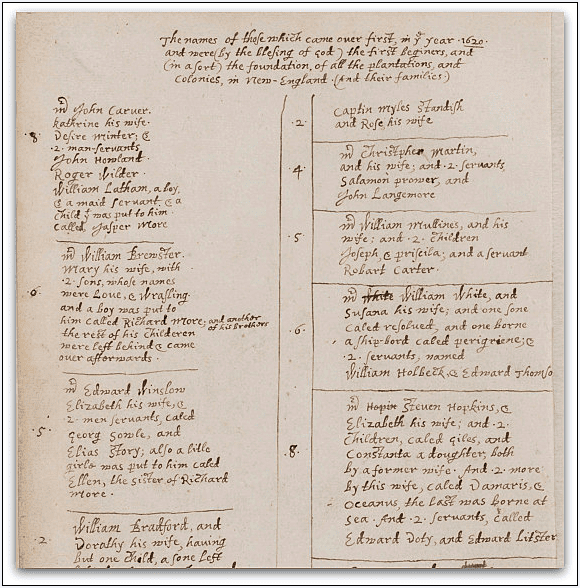 The names of those which came over first, in yͤ year .1620.
and were (by the blesing of God) the first beginers, and
(in a sort) the foundation, of all the plantations, and
Colonies, in New-England. (And their families.)
.8.
mͬ John Carver.
kathrine his wife.
Desire minter; &
.2. man-servants
John Howland
Roger Wilder.
William Latham, a boy,
& a maid servant. & a
child yͭ was put to him
called, Jasper More
.6.
mͬ William Brewster.
Mary his wife, with
.2. sons, whose names
were Love, & Wrasling.
and a boy was put to
him called Richard More; and another
of his brothers
the rest of his childeren
were left behind & came
over afterwards.
.5.
mͬ Edward Winslow
Elizabeth his wife, &
.2. men servants, caled
Georg Sowle, and
Elias Story; also a litle
girle was put to him caled
Ellen, the sister of Richard
More.
.2.
William Bradford, and
Dorathy his wife, having
but one child, a sone left
.2.
Captin Myles Standish
and Rose, his wife
4.
mͬ Christpher Martin,
and his wife; and .2. servants,
Salamon prower, and
John Langemore
.5.
mͬ William Mullines, and his
wife; and .2. children
Joseph, & priscila; and a servant
Robart Carter.
.6.
mͬ White William White, and
Susana his wife; and one sone
caled resolved, and one borne
a ship-bord caled perigriene; &
.2. servants, named
William Holbeck, & Edward Thomso
.8.
mͬ Hopin Steven Hopkins, &
Elizabeth his wife; and .2.
children, caled Giles, and
Constanta a doughter, both
by a former wife. And .2. more
by this wife, caled Damaris, &
Oceanus, the last was borne at
sea. And .2. servants, called
Edward Doty, and Edward Litster.